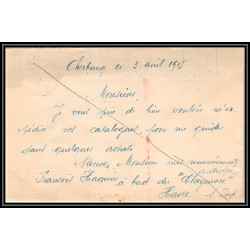 Cherbourg le 3 avril
Monsieur,
Je vous prie de bien vouloir m'ex-
pédier vos catalogues pour me guider
dans quelques achats.
Monsieur mes remerciements
François à bord du
Havre